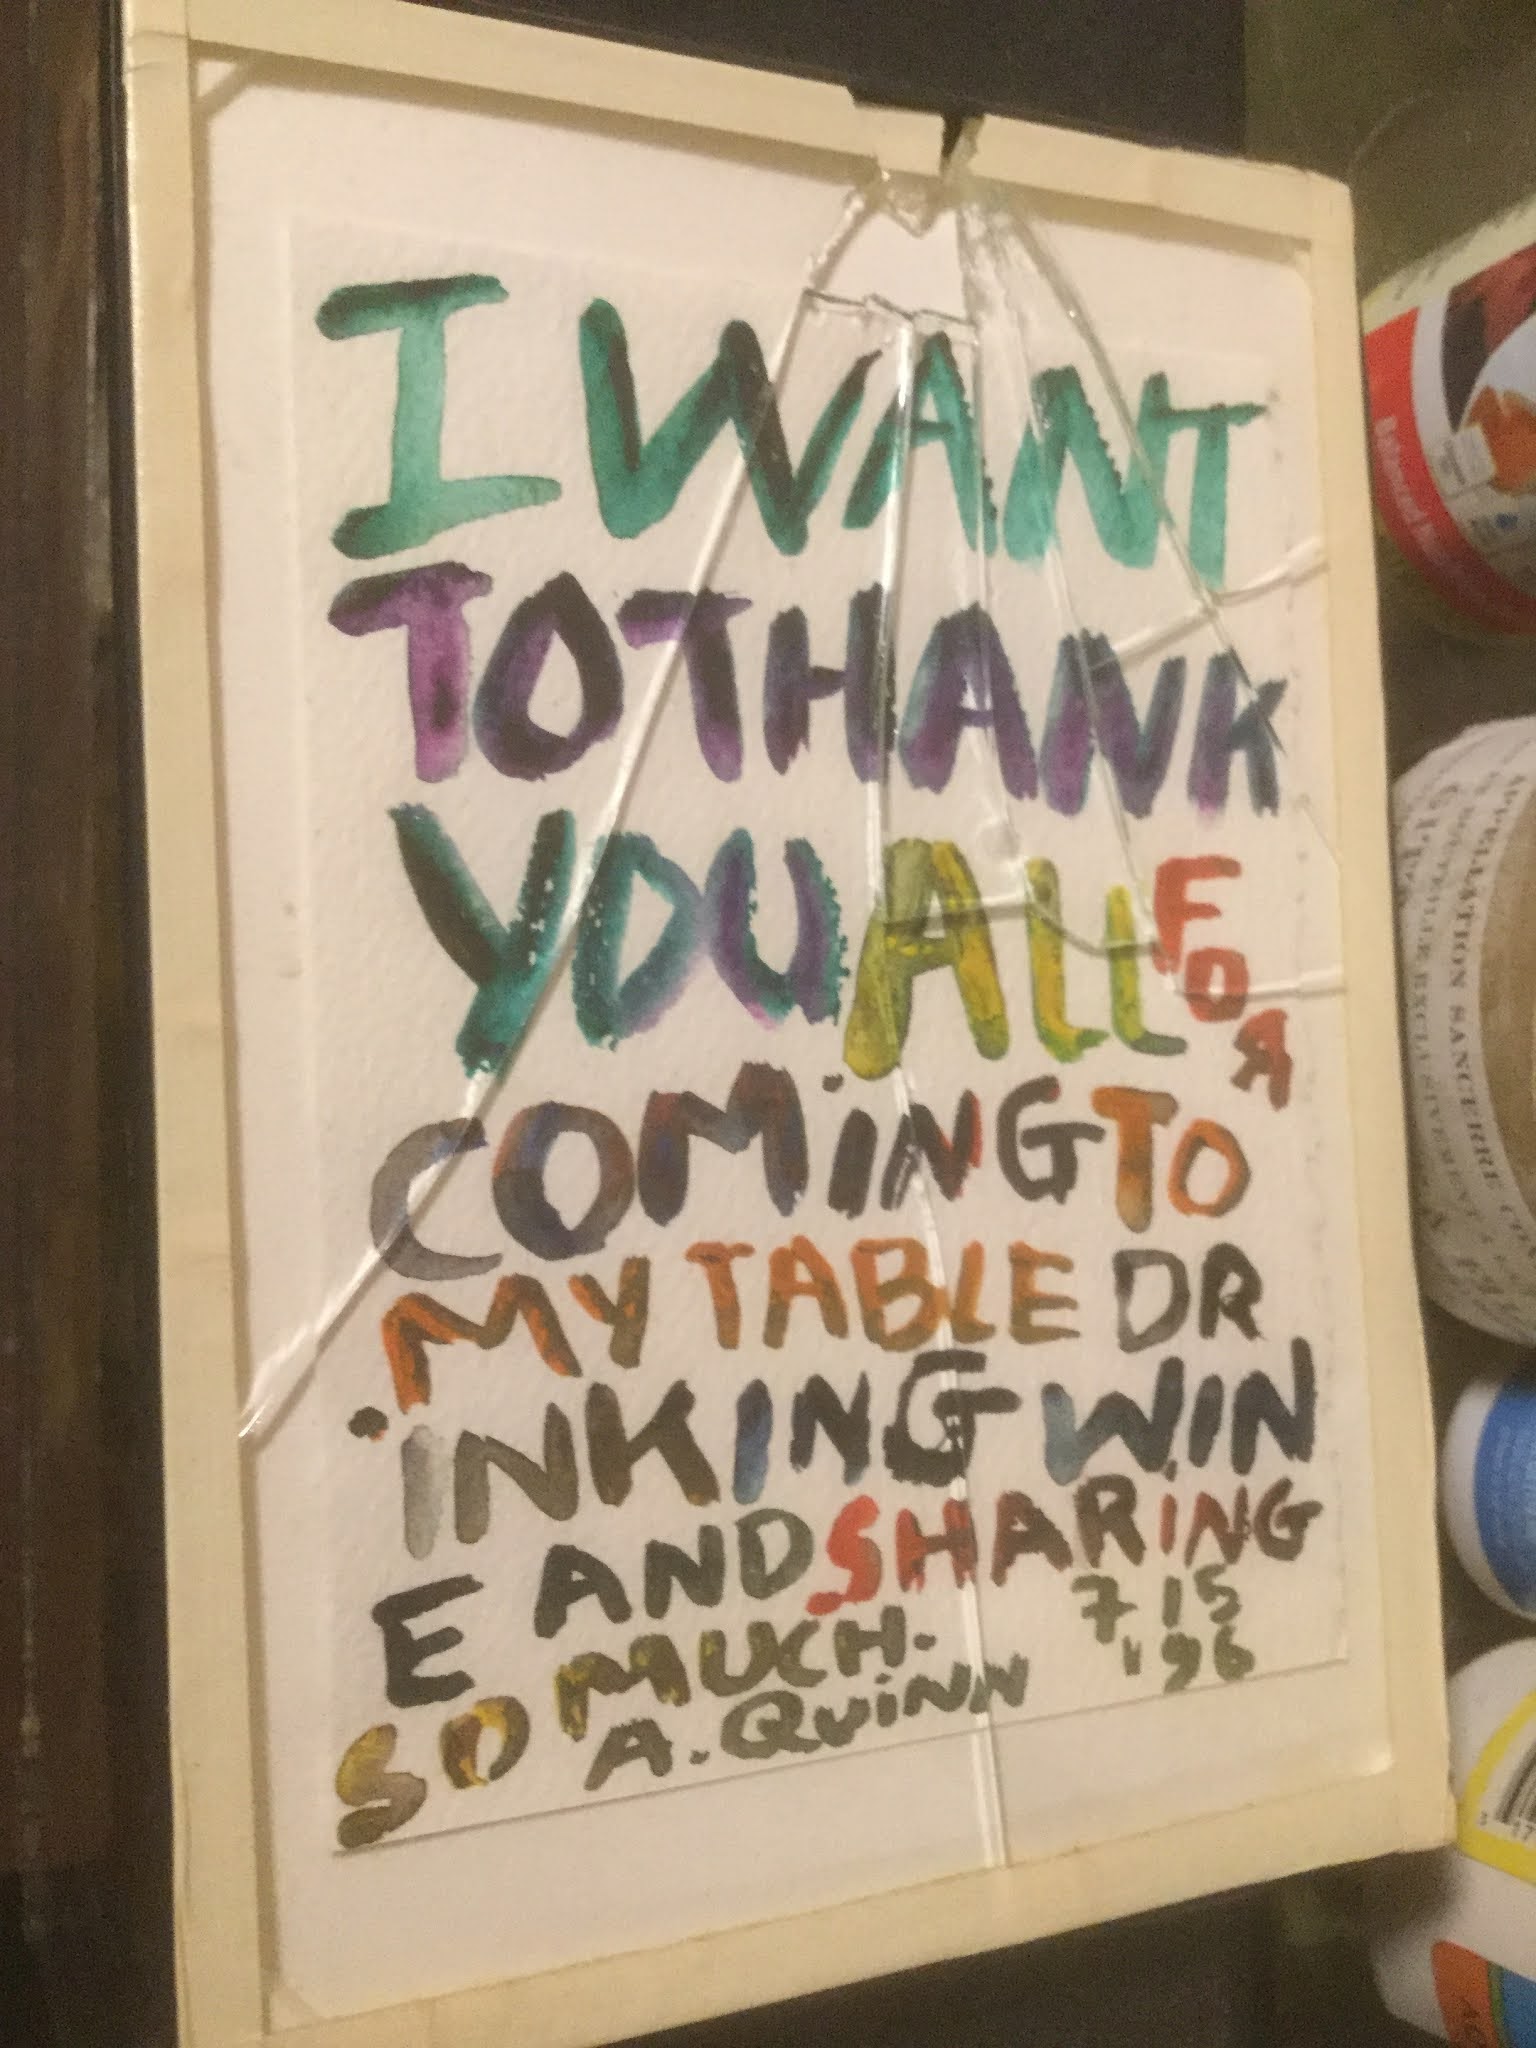 I WANT
TO THANK
YOU ALL FOR
COMiNG TO
MY TABLE DR
iNKING WIN
E AND SHARiNG
SO MUCH. 7 15
A. QUiNN '96
APPELLATION SANCERRE